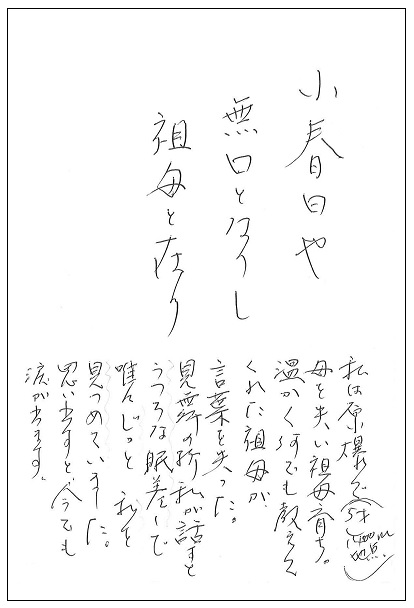 小春日や
無口となりし
祖母と在り
私は原爆で(5才 地点)
母を失い祖母育ち。
温かく何でも教えて
くれた祖母が
言葉を失った。
見舞の折私が話すと
うつろな眼差しで
唯々じっと 私を
見つめていました。
思い出すと今でも
涙が出ます。